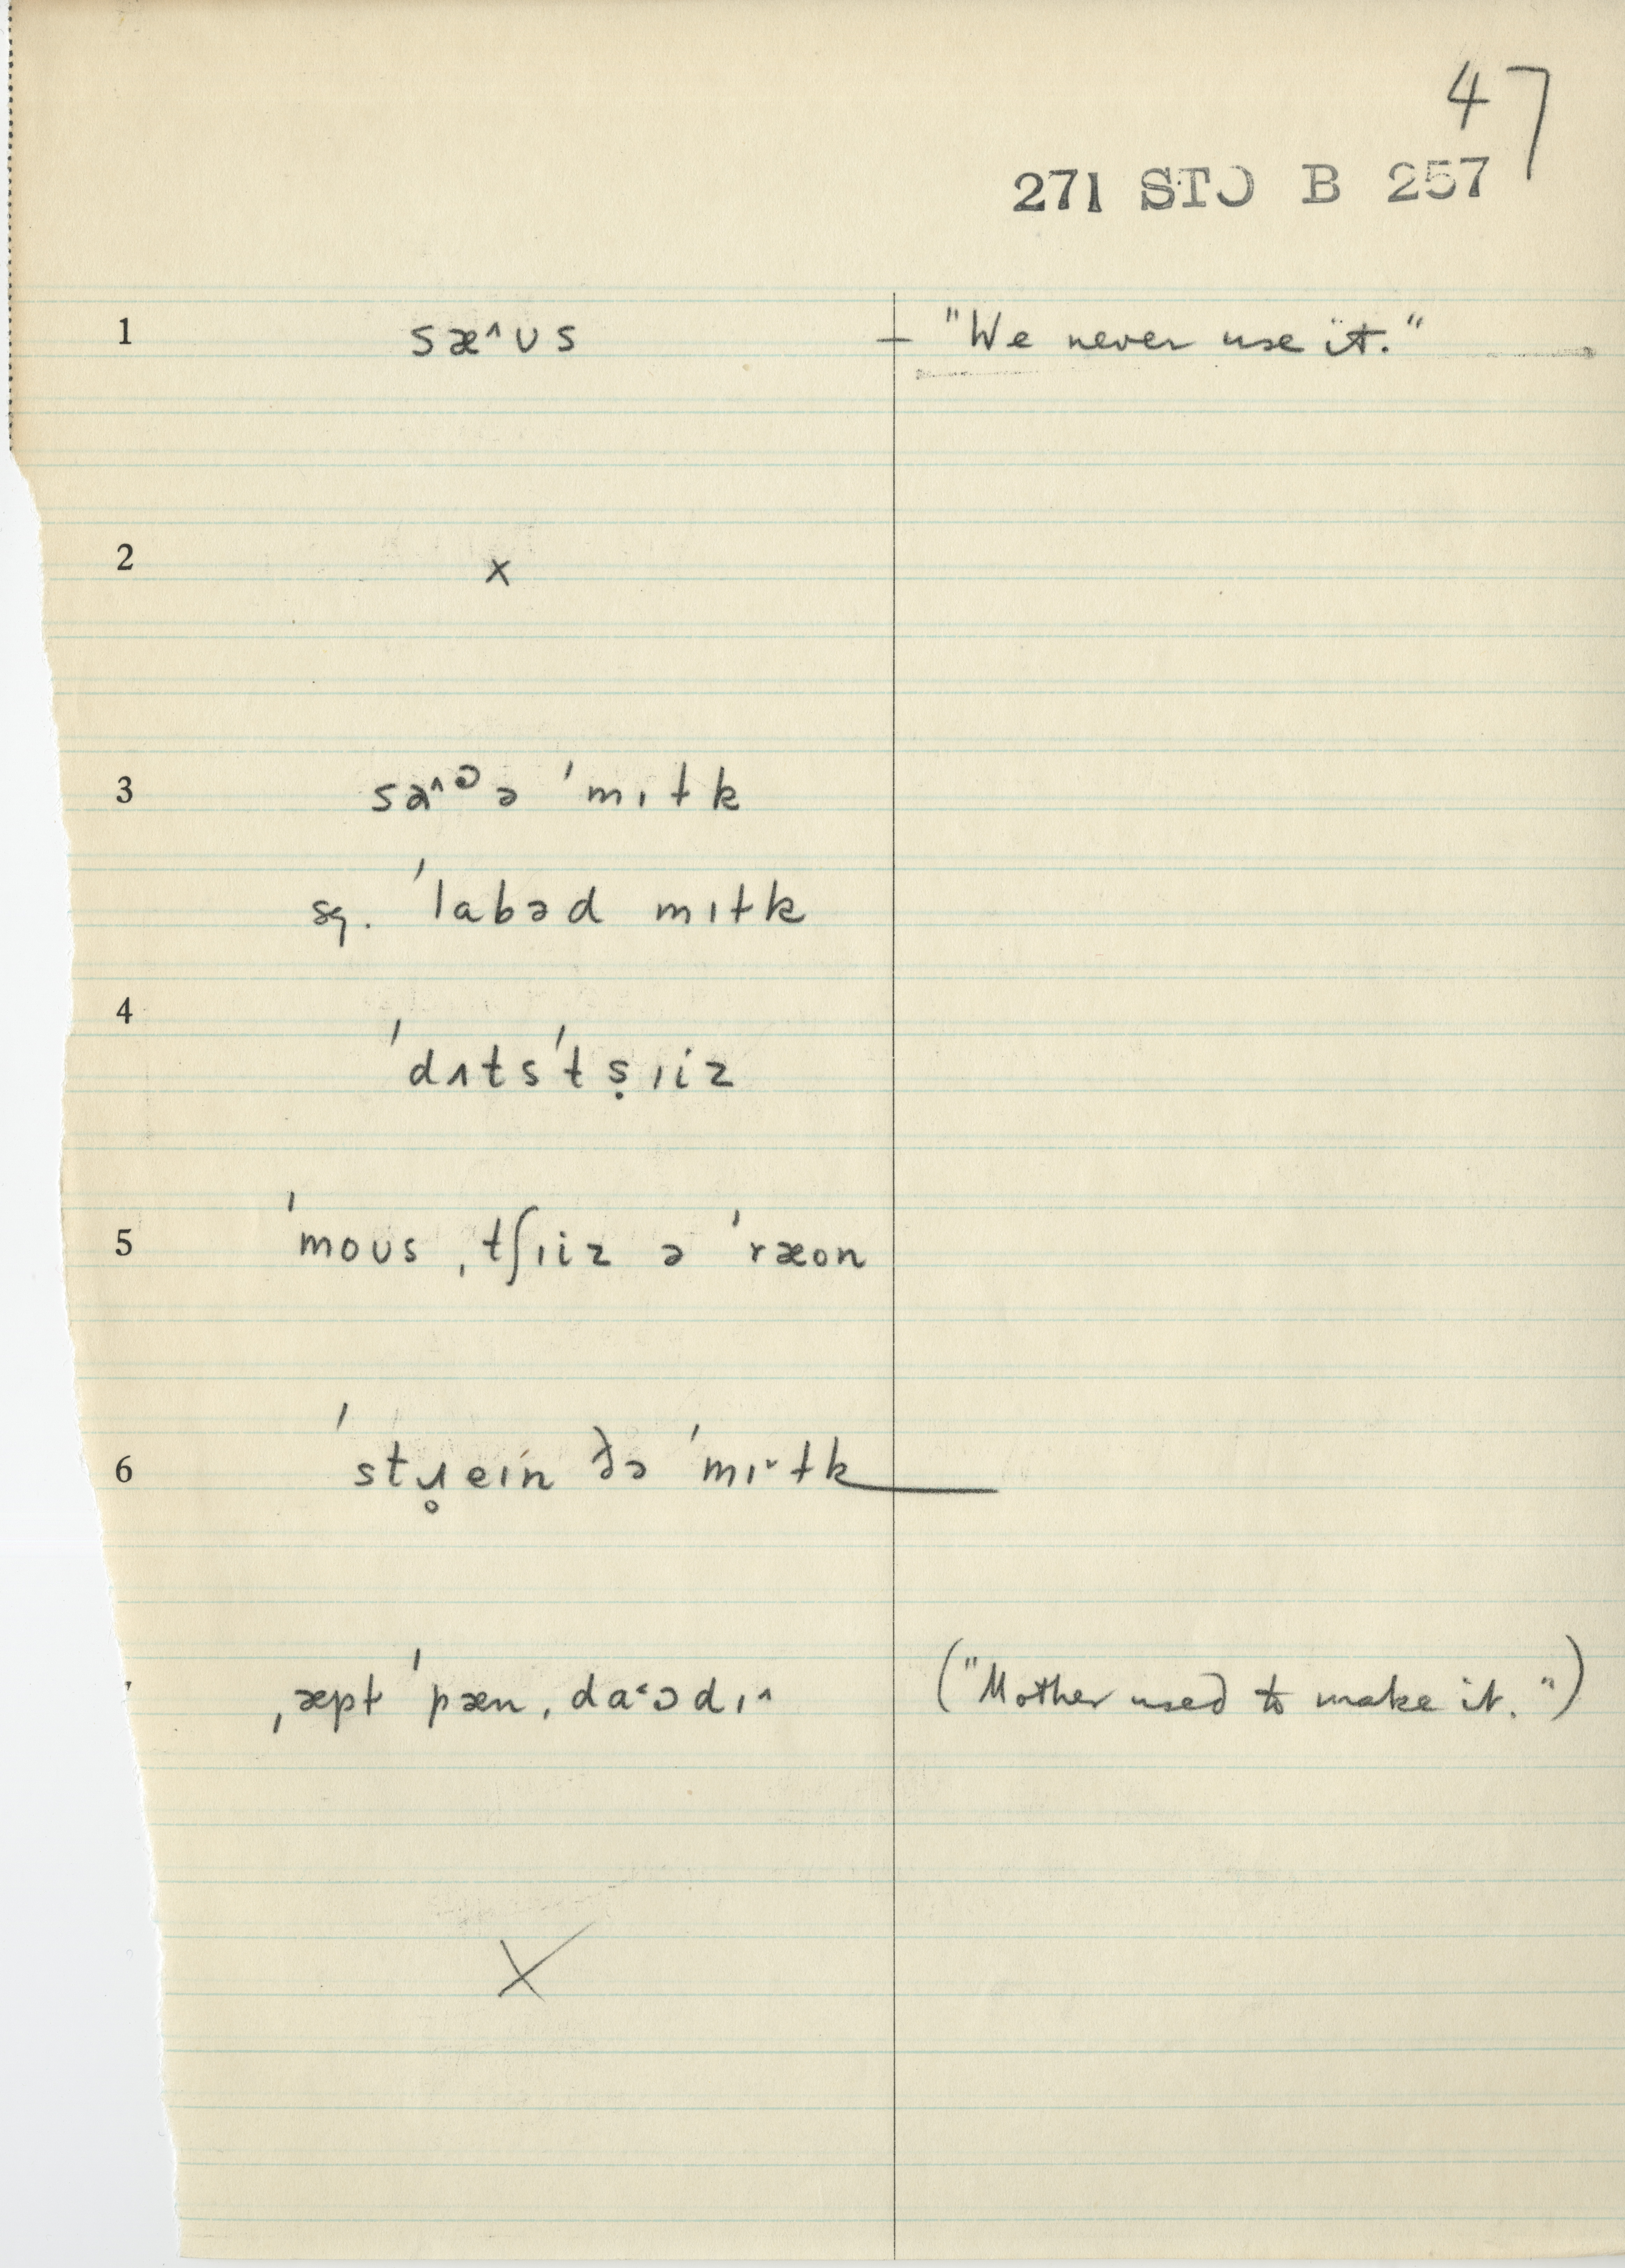 47
271 STO B 257
1 sæ^ʊs — "We never use it."
2 x
3 sa^ᵊə ˈmɪɫk
sq. ˈlabəd mɪɫk
4 ˈdʌtsˈtṣɪiz
5 ˈmoʊs ˌtʃɪiz ə ˈræon
6 ˈstɹ̥eɪn ðə ˈmɪ˅ɫk
ˌæpɫ ˈpæn ˌdaˑədɪ^ ("Mother used to make it.")
x